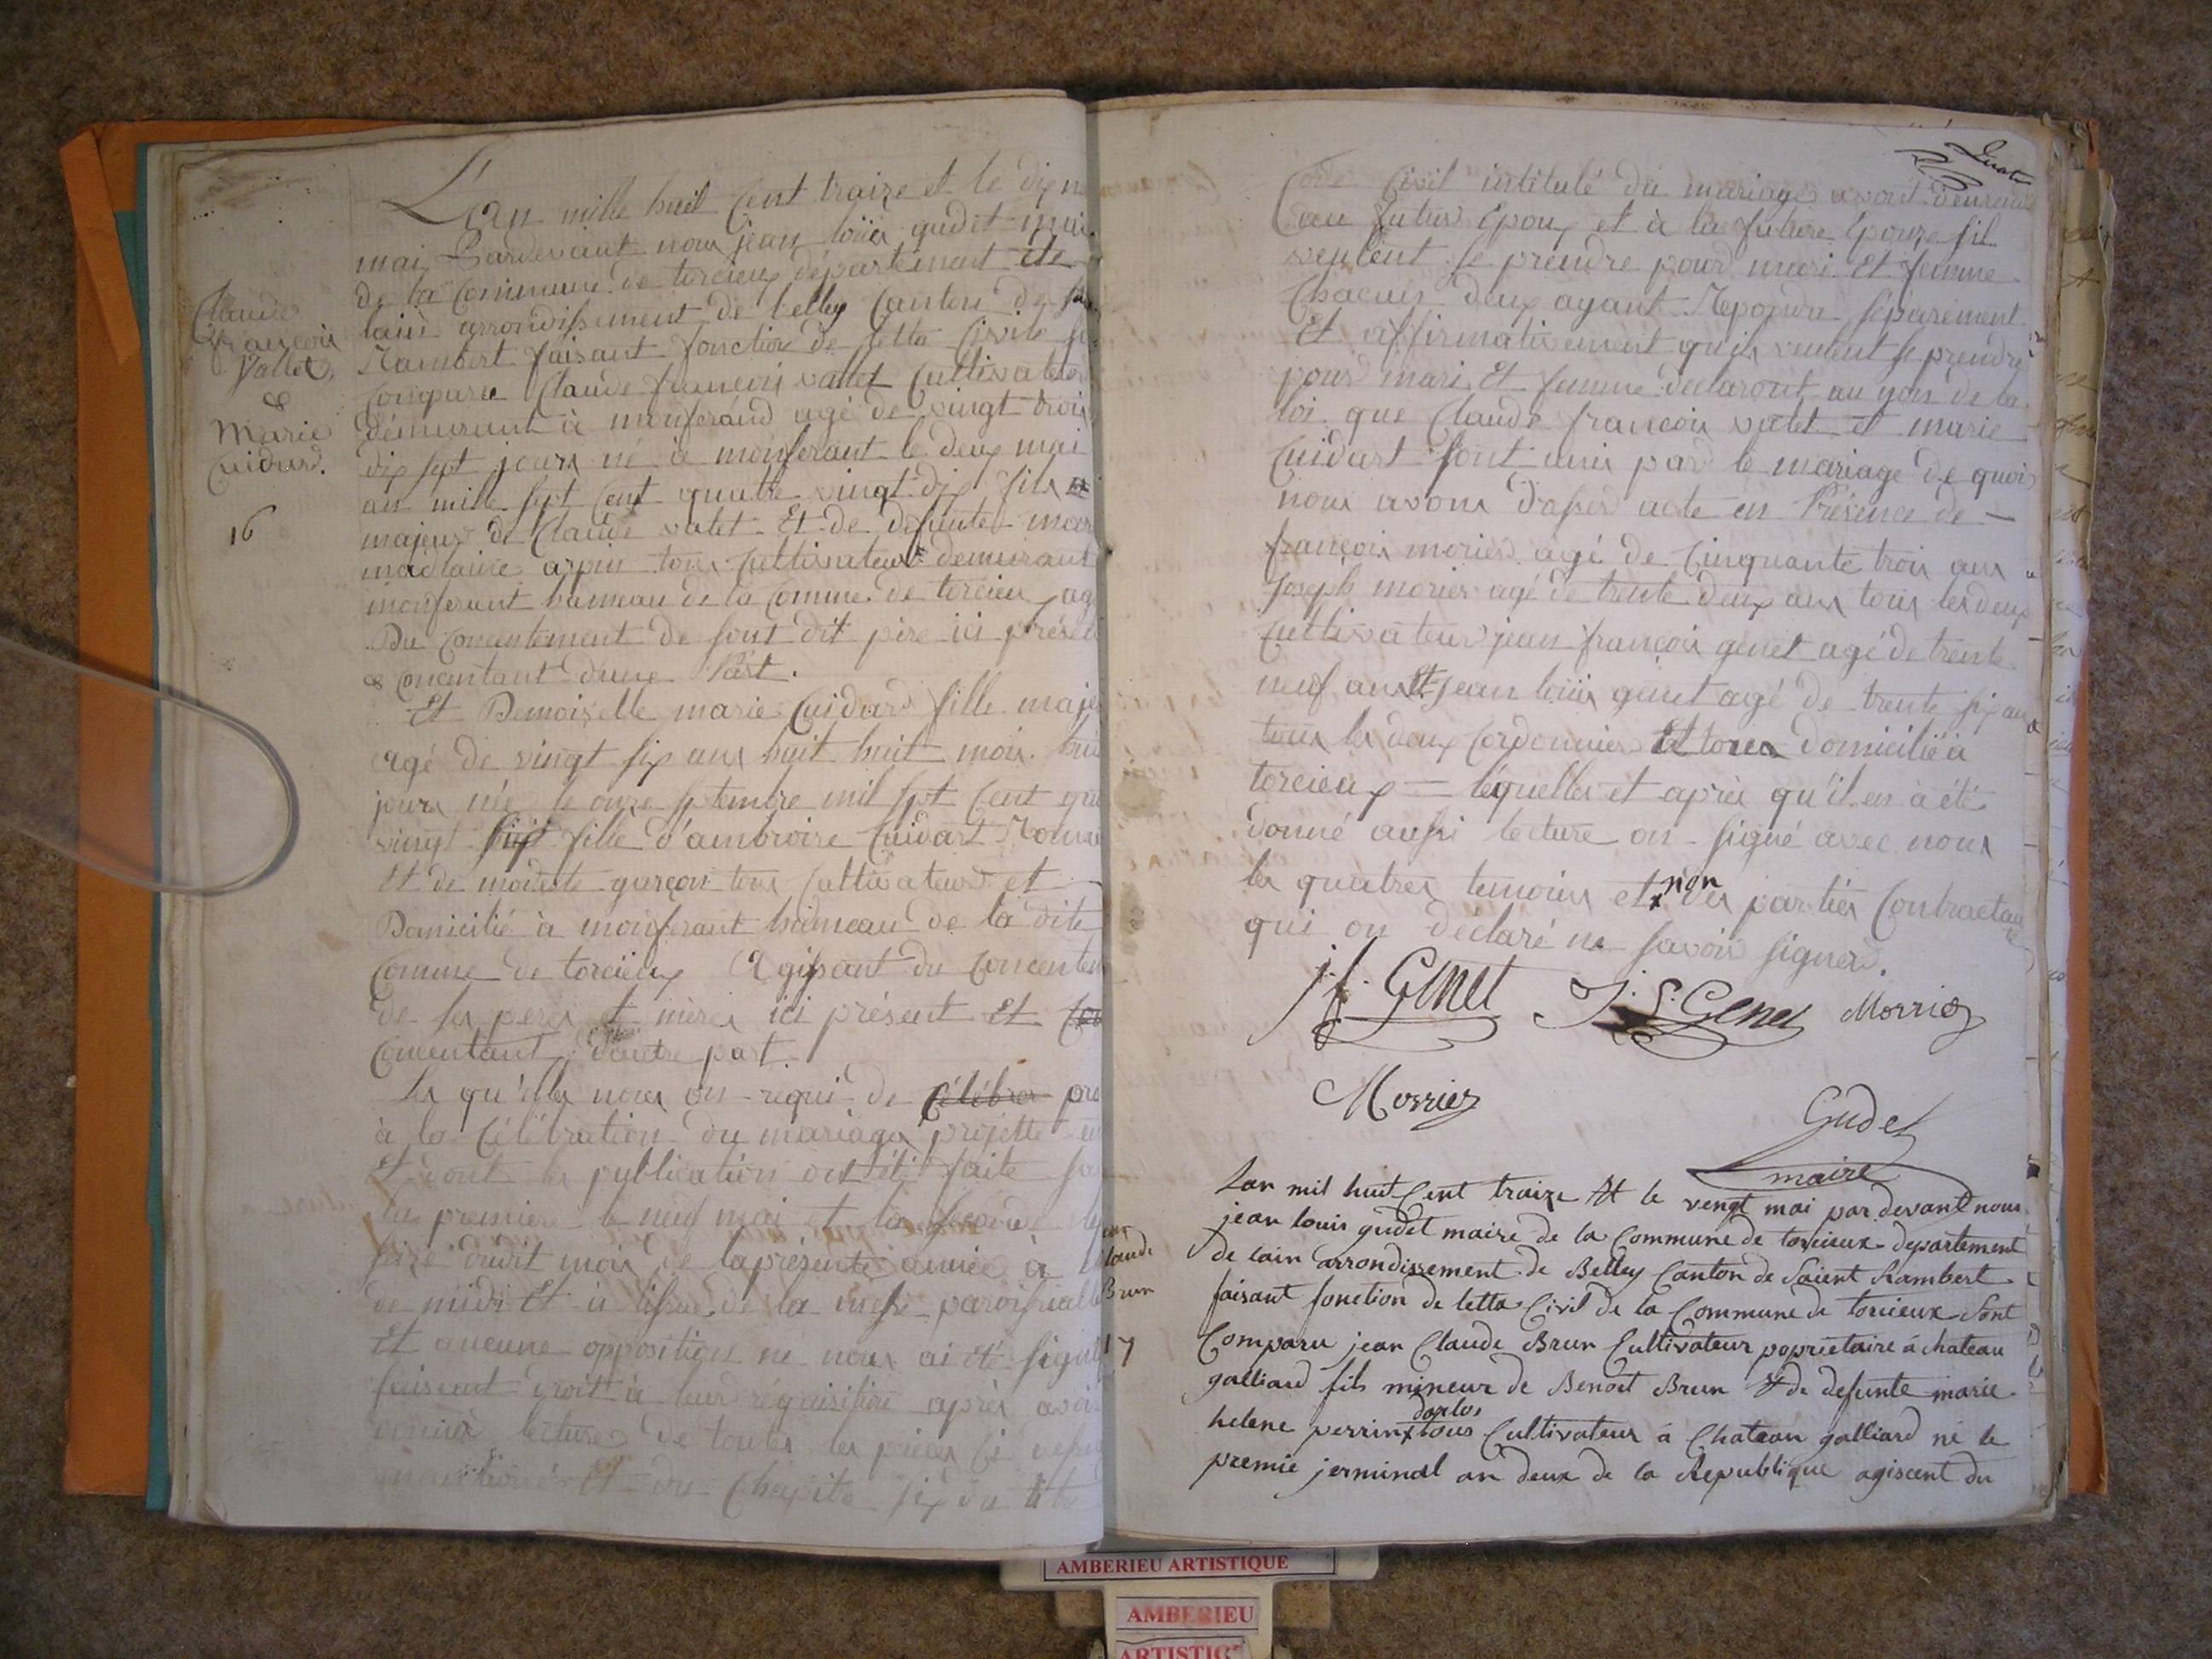 L'an mille huit Cent traize et le dix ne
mai Pardevant nous jean loüis gudet mai
de la Commune de torcieux département de
lain arrondissement de belley Canton de
Rambert faisant fonction de letta Civile
Comparu Claude françois vallet Cultivateur
démurant à monferand agé de vingt trois
dix sept jours né à monferant le deux mai
an mille sept Cent quatre vingt dix fils
majeur de Claude valet Et de defunte mar
madlaine arpin tous Cultivateur demurant
monferant hameau de la Comme de torcieux ag
Du Concentement de sont dit père ici présent
& Concentant dune Part.
Claude
françois
Vallet,
&
Marie
Cuidard.
16
Et Demoiselle marie Cuidard fille maje
agé de vingt six ans huit huit mois
jours née le onze septembre mil sept Cent qua
vingt fille d'ambroise Cuidart
Et de modeste garçon tous Cultivateur et
Domicilié à monferant hameau de la dite
Comme de torcieux Agissant du Concentem
de ses peres et mères ici présent Et
Concentant d'autre part.
Les qu'elles nous on requi de Célébrer pro
à la Célébration du mariage projetté
Et dont les publication ont été faite
la premiere le neuf mai et la second le
seize dudit mois de la présente année à
de midi Et à lissue de la messe paroissialle
Et aucune opposition ne nous ai été signif
faisant droit à leur réquisition après avoi
donné lecture de toutes les pieces Ci dessu
mentionné Et du Chapitre six du titre
Code Civil intitulé du mariage avons demendé
au futur Epoux et à la future Epouze sil
veulent se prendre pour mari Et femme
Chacun deux ayant Repondu séparement
Et affirmativement quils veulent se prendre
pour mari Et femme declarons au nom de la
loi que Claude françois valet et marie
Cuidart sont unis par le mariage de quois
nous avons dresser acte en Présence de —
françois morier agé de Cinquante trois ans
Joseph morier agé de trente deux ans tous les deux
Cultivateur jean françois genet agé de trente
neuf ans Et jean loüis genet agé de trente six ans
tous les deux Cordonnier Et tous domicilié à
torcieux — léquelles et après qu'il en à été
donné aussi lecture on signé avec nous
les quatres temoins et non des parties Contractan
qui on déclaré ne savoir signer.
j f. GENET J. L. Genet Morrier
Morrier
Gudet
maire
Lan mil huit Cent traize Et le vengt mai par devant nous
jean louis gudet maire de la Commune de torcieux departement
de lain arrondissement de Belley Canton de Saient Rambert
faisant fonction de letta Civil de la Commune de torcieux Sont
Comparu jean Claude Brun Cultivateur poprietaire á chateau
galliard fils mineur de Benoit Brun Et de defunte marie
helene perrin tous Cultivateur á Chateau galliard né le
premie jerminal an deux de la Republique agiscent du
laude
Brun
17
AMBERIEU ARTISTIQUE
AMBERIEU
ARTISTIQ